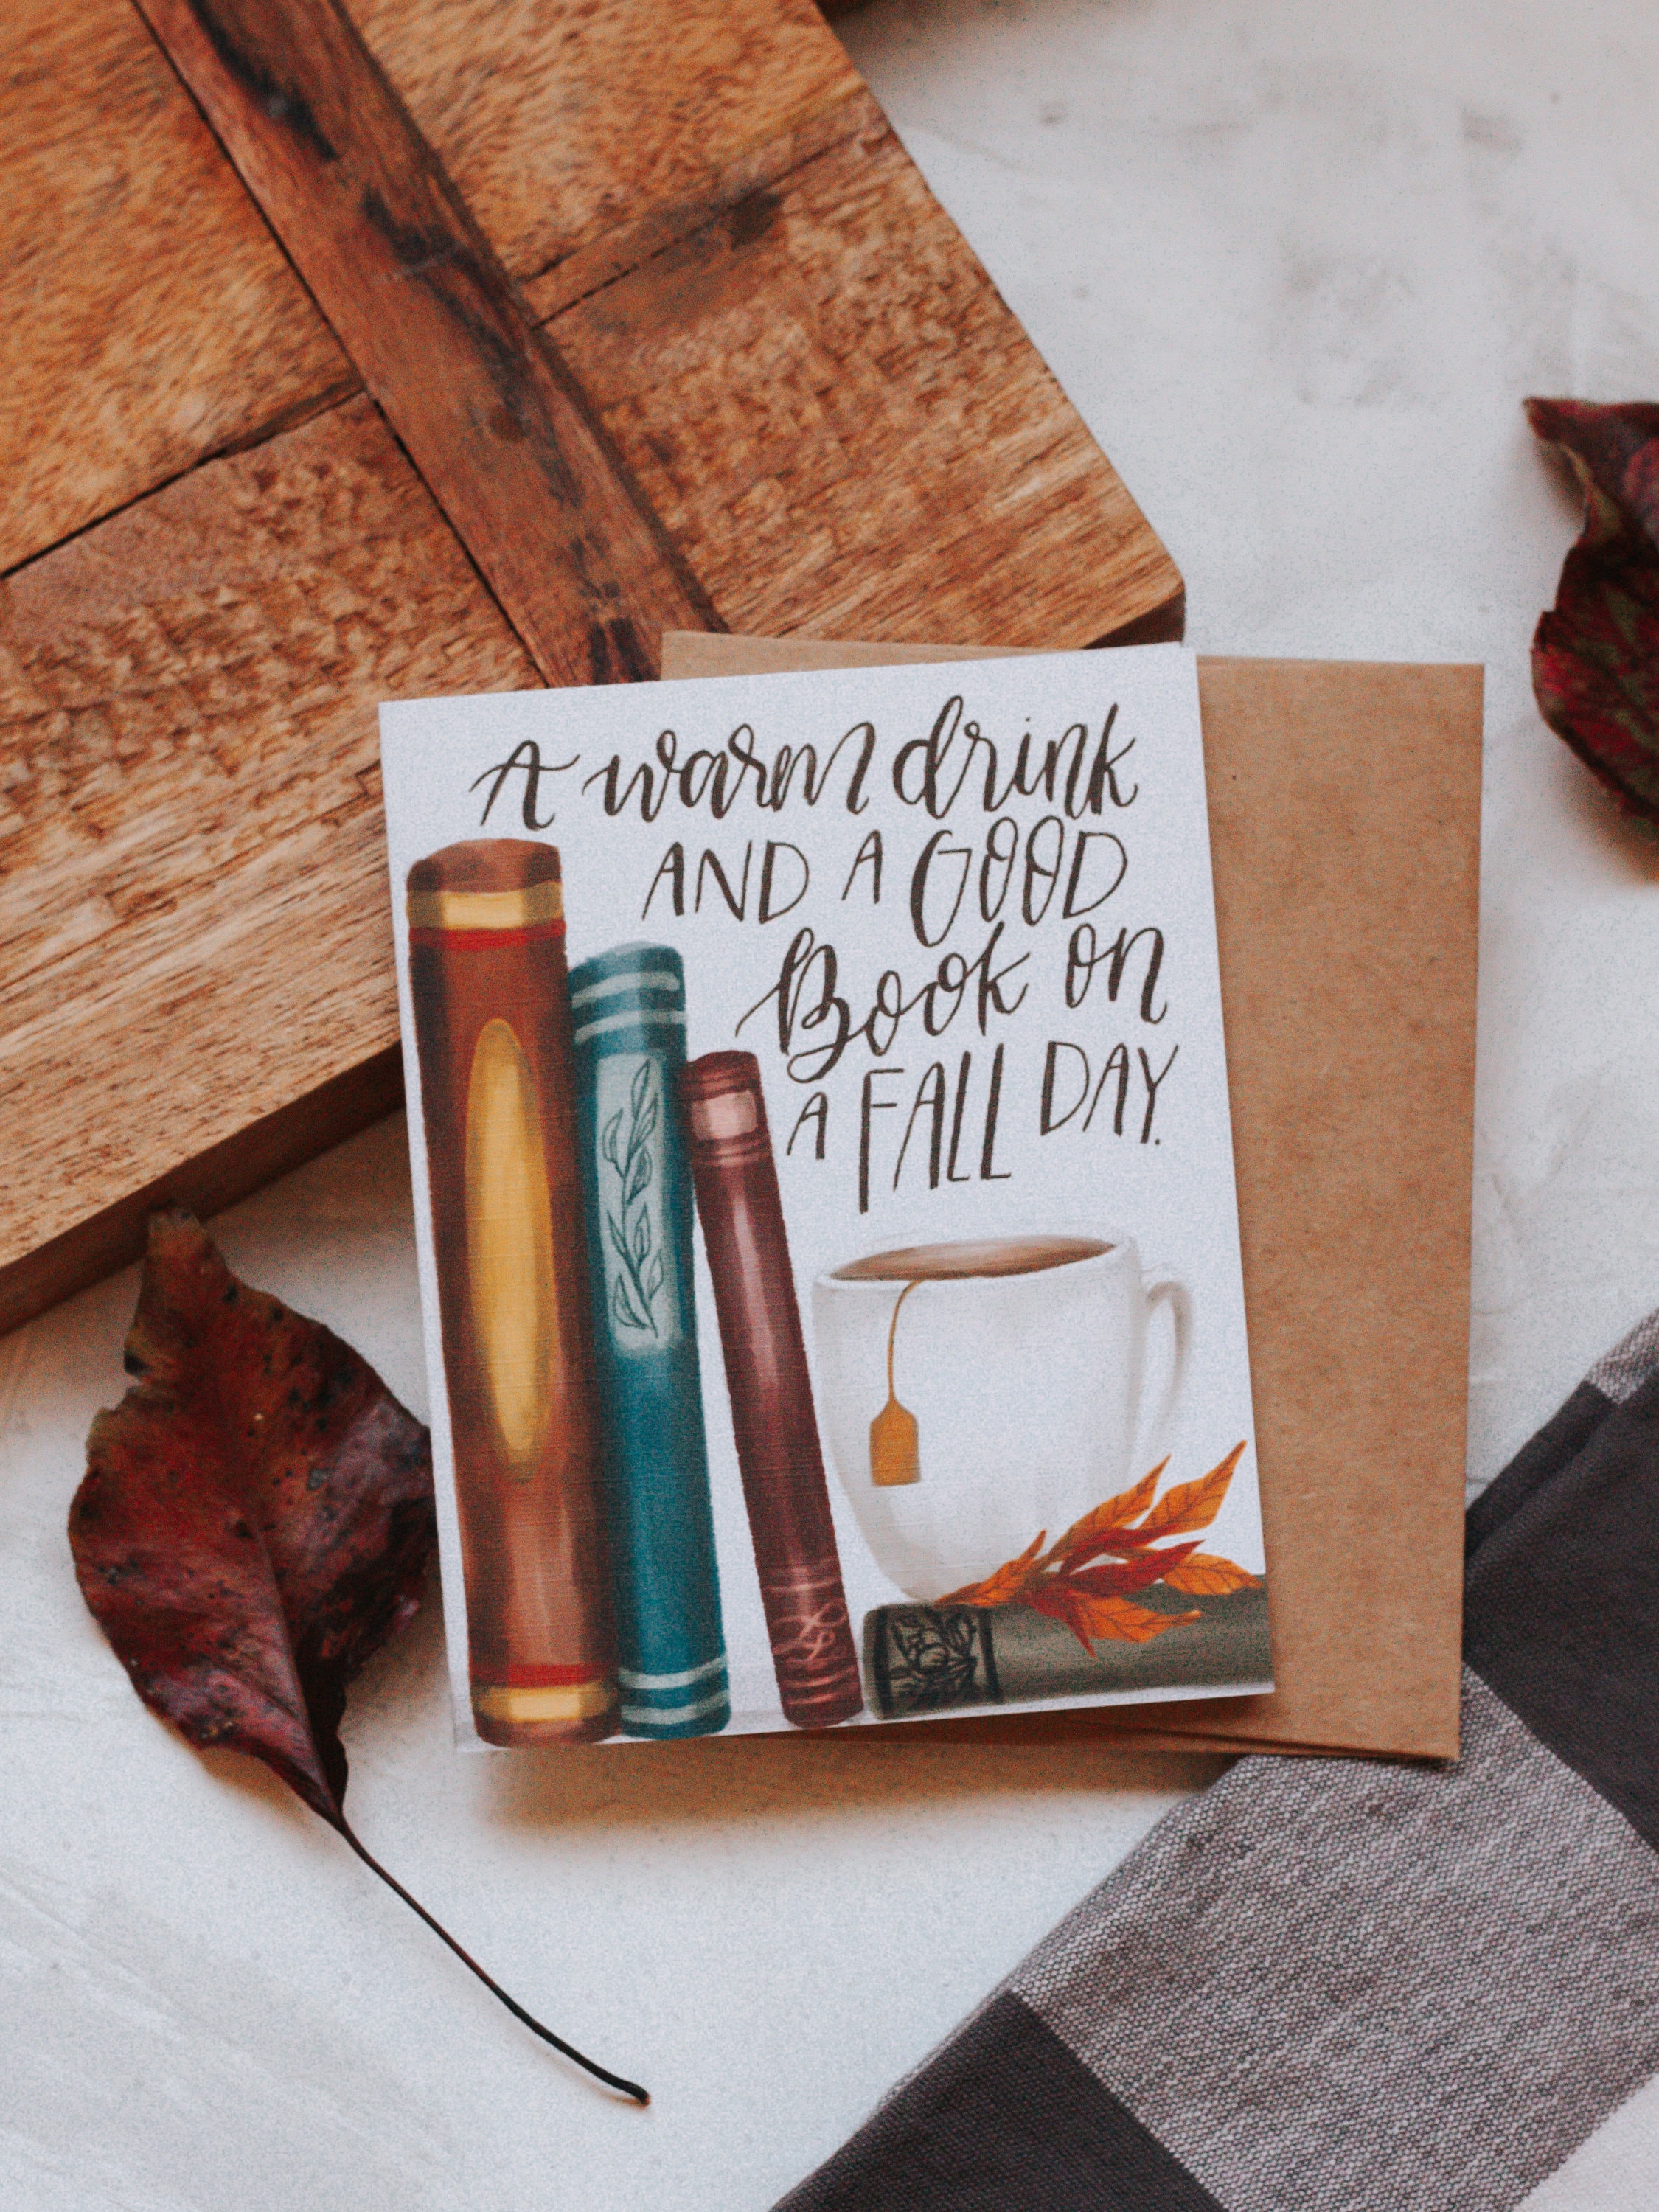 A warm drink
AND A GOOD
Book on
A FALL DAY.